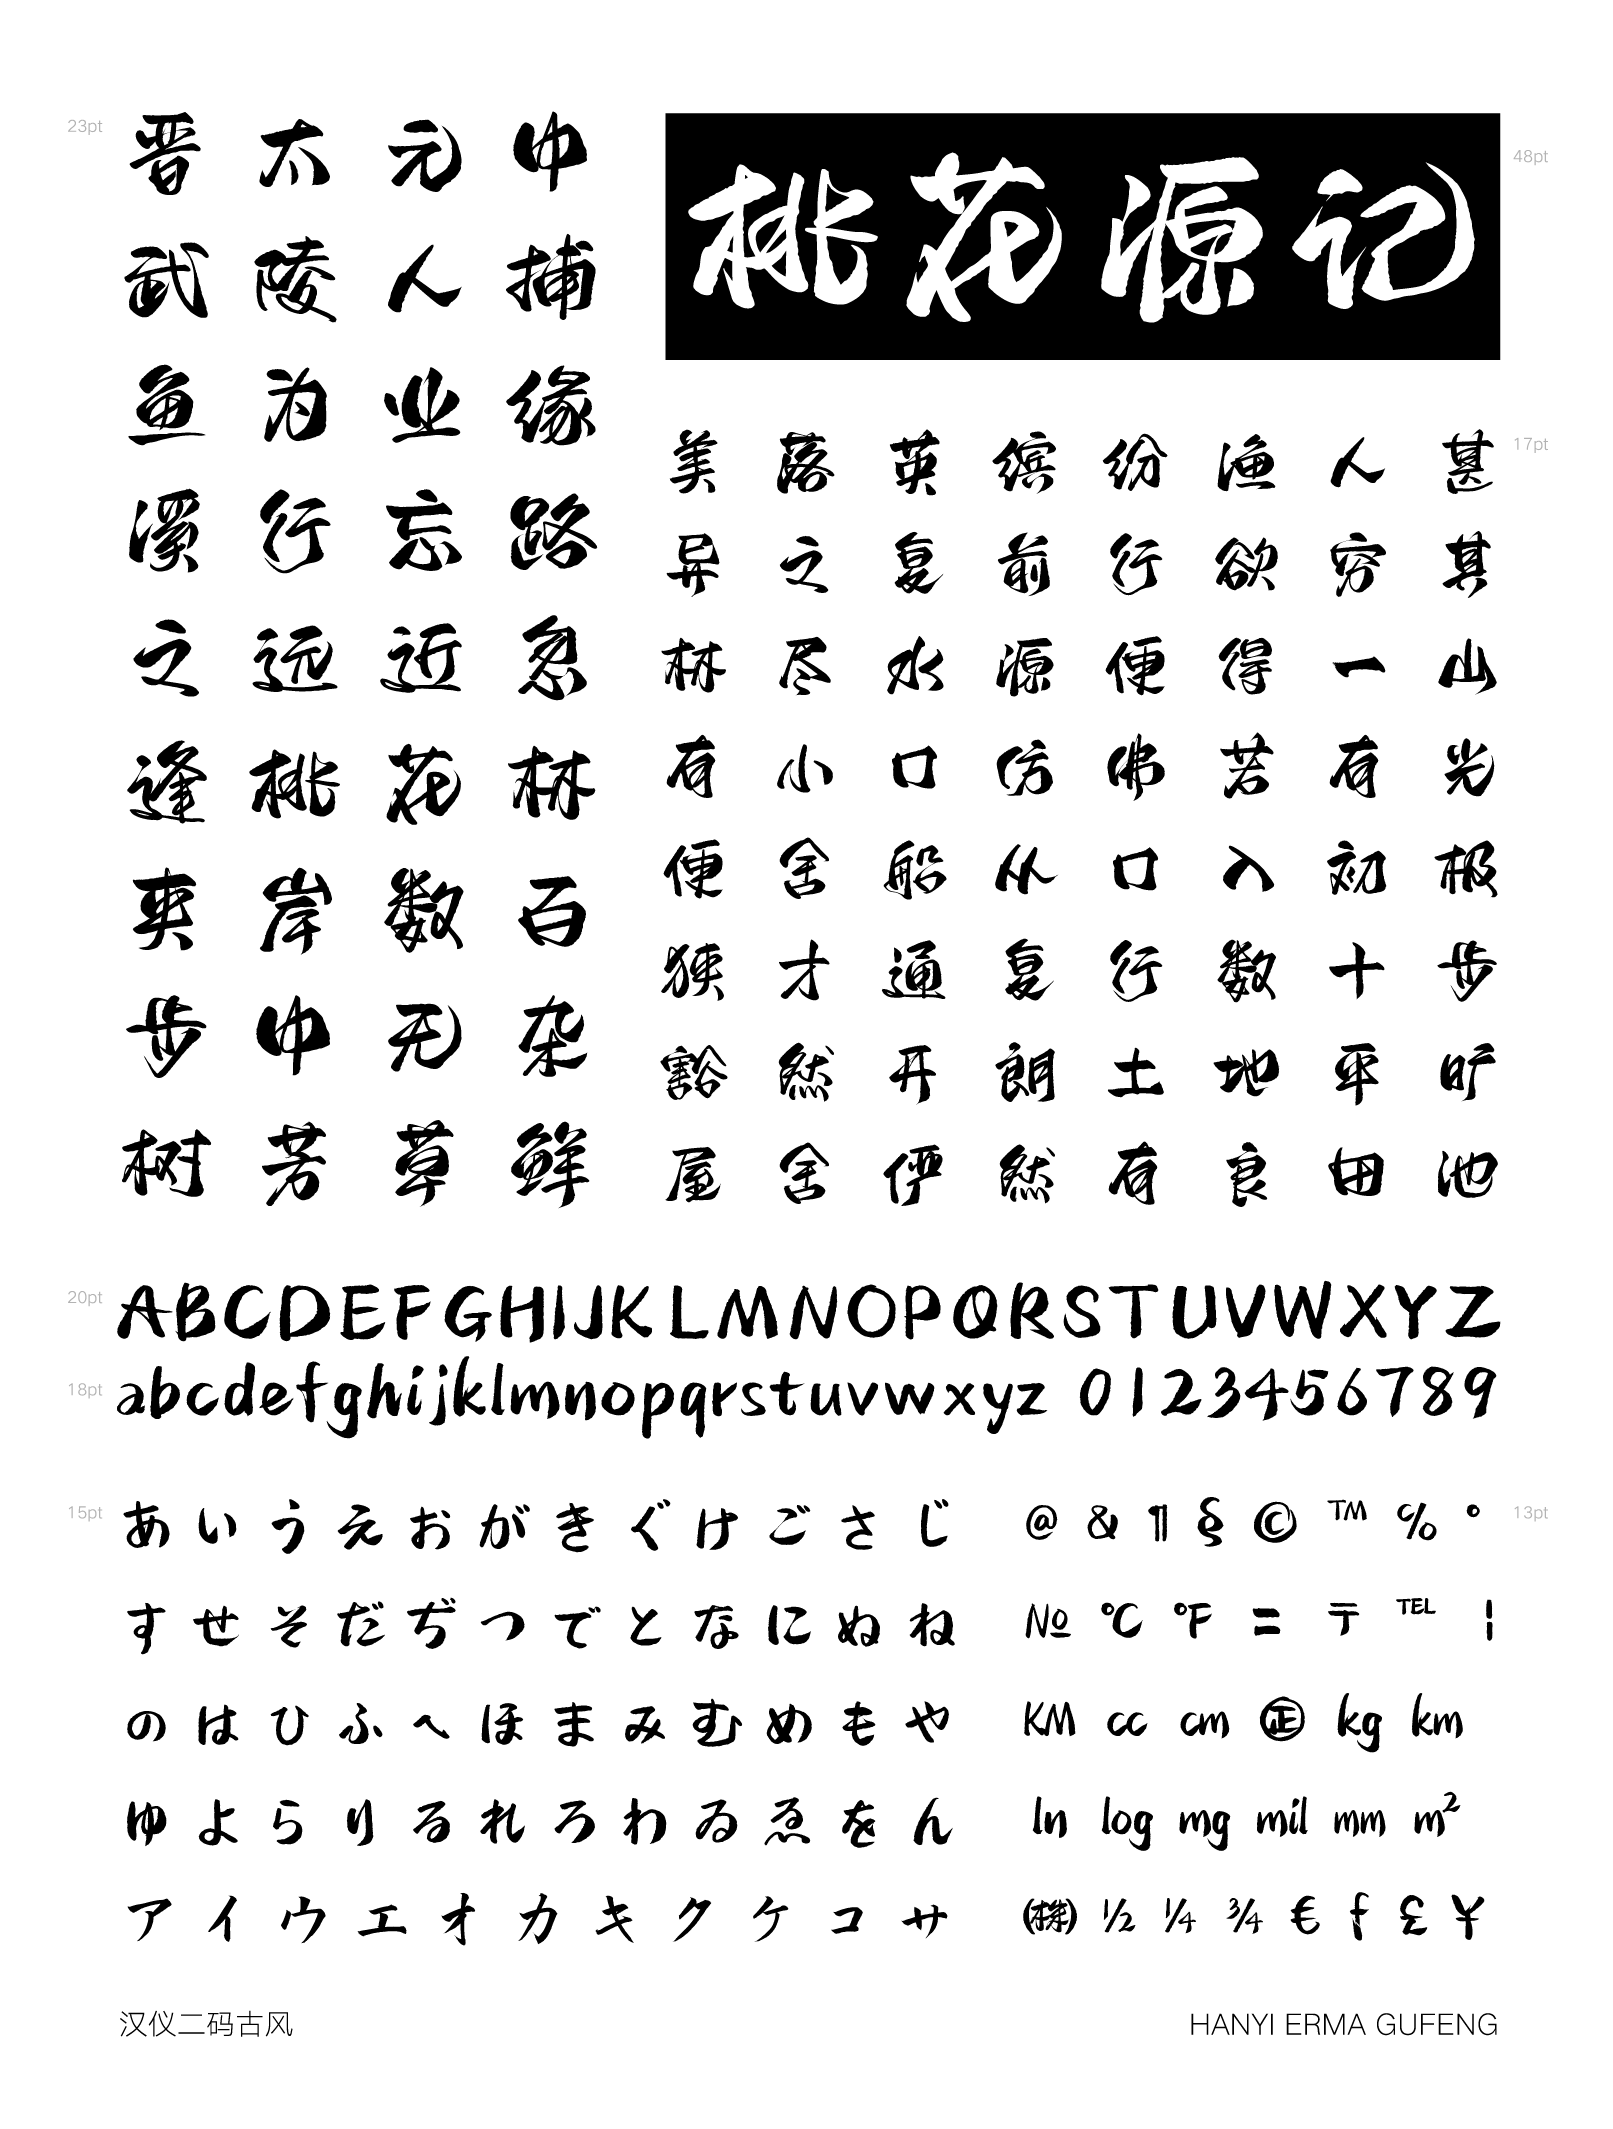 23pt
晋太元中
武陵人捕
鱼为业缘
溪行忘路
之远近忽
逢桃花林
夹岸数百
步中无杂
树芳草鲜
桃花源记
48pt
美落英缤纷渔人甚
17pt
异之复前行欲穷其
林尽水源便得一山
有小口仿佛若有光
便舍船从口入初极
狭才通复行数十步
豁然开朗土地平旷
屋舍俨然有良田池
20pt
ABCDEFGHIJKLMNOPQRSTUVWXYZ
18pt
abcdefghijklmnopqrstuvwxyz 0123456789
15pt
あいうえおがきぐけごさじ
すせそだぢつでとなにぬね
のはひふへほまみむめもや
ゆよらりるれろわゐゑをん
アイウエオカキクケコサ
@ & ¶ § © ™ ℅ °
13pt
№ ℃ ℉ = 〒 ℡ ¦
KM cc cm ㊣ kg km
ln log mg mil mm m²
㈱ ½ ¼ ¾ € f £ ¥
汉仪二码古风
HANYI ERMA GUFENG